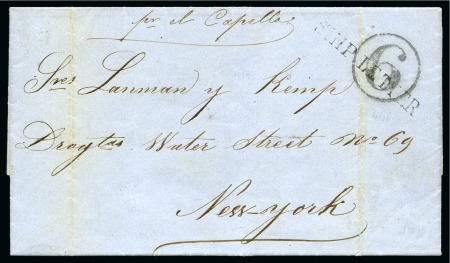 pr el Capella
SHIP LETTER
6
Sres Lanman y Kemp
Drogtas Water Street No 69
New-york